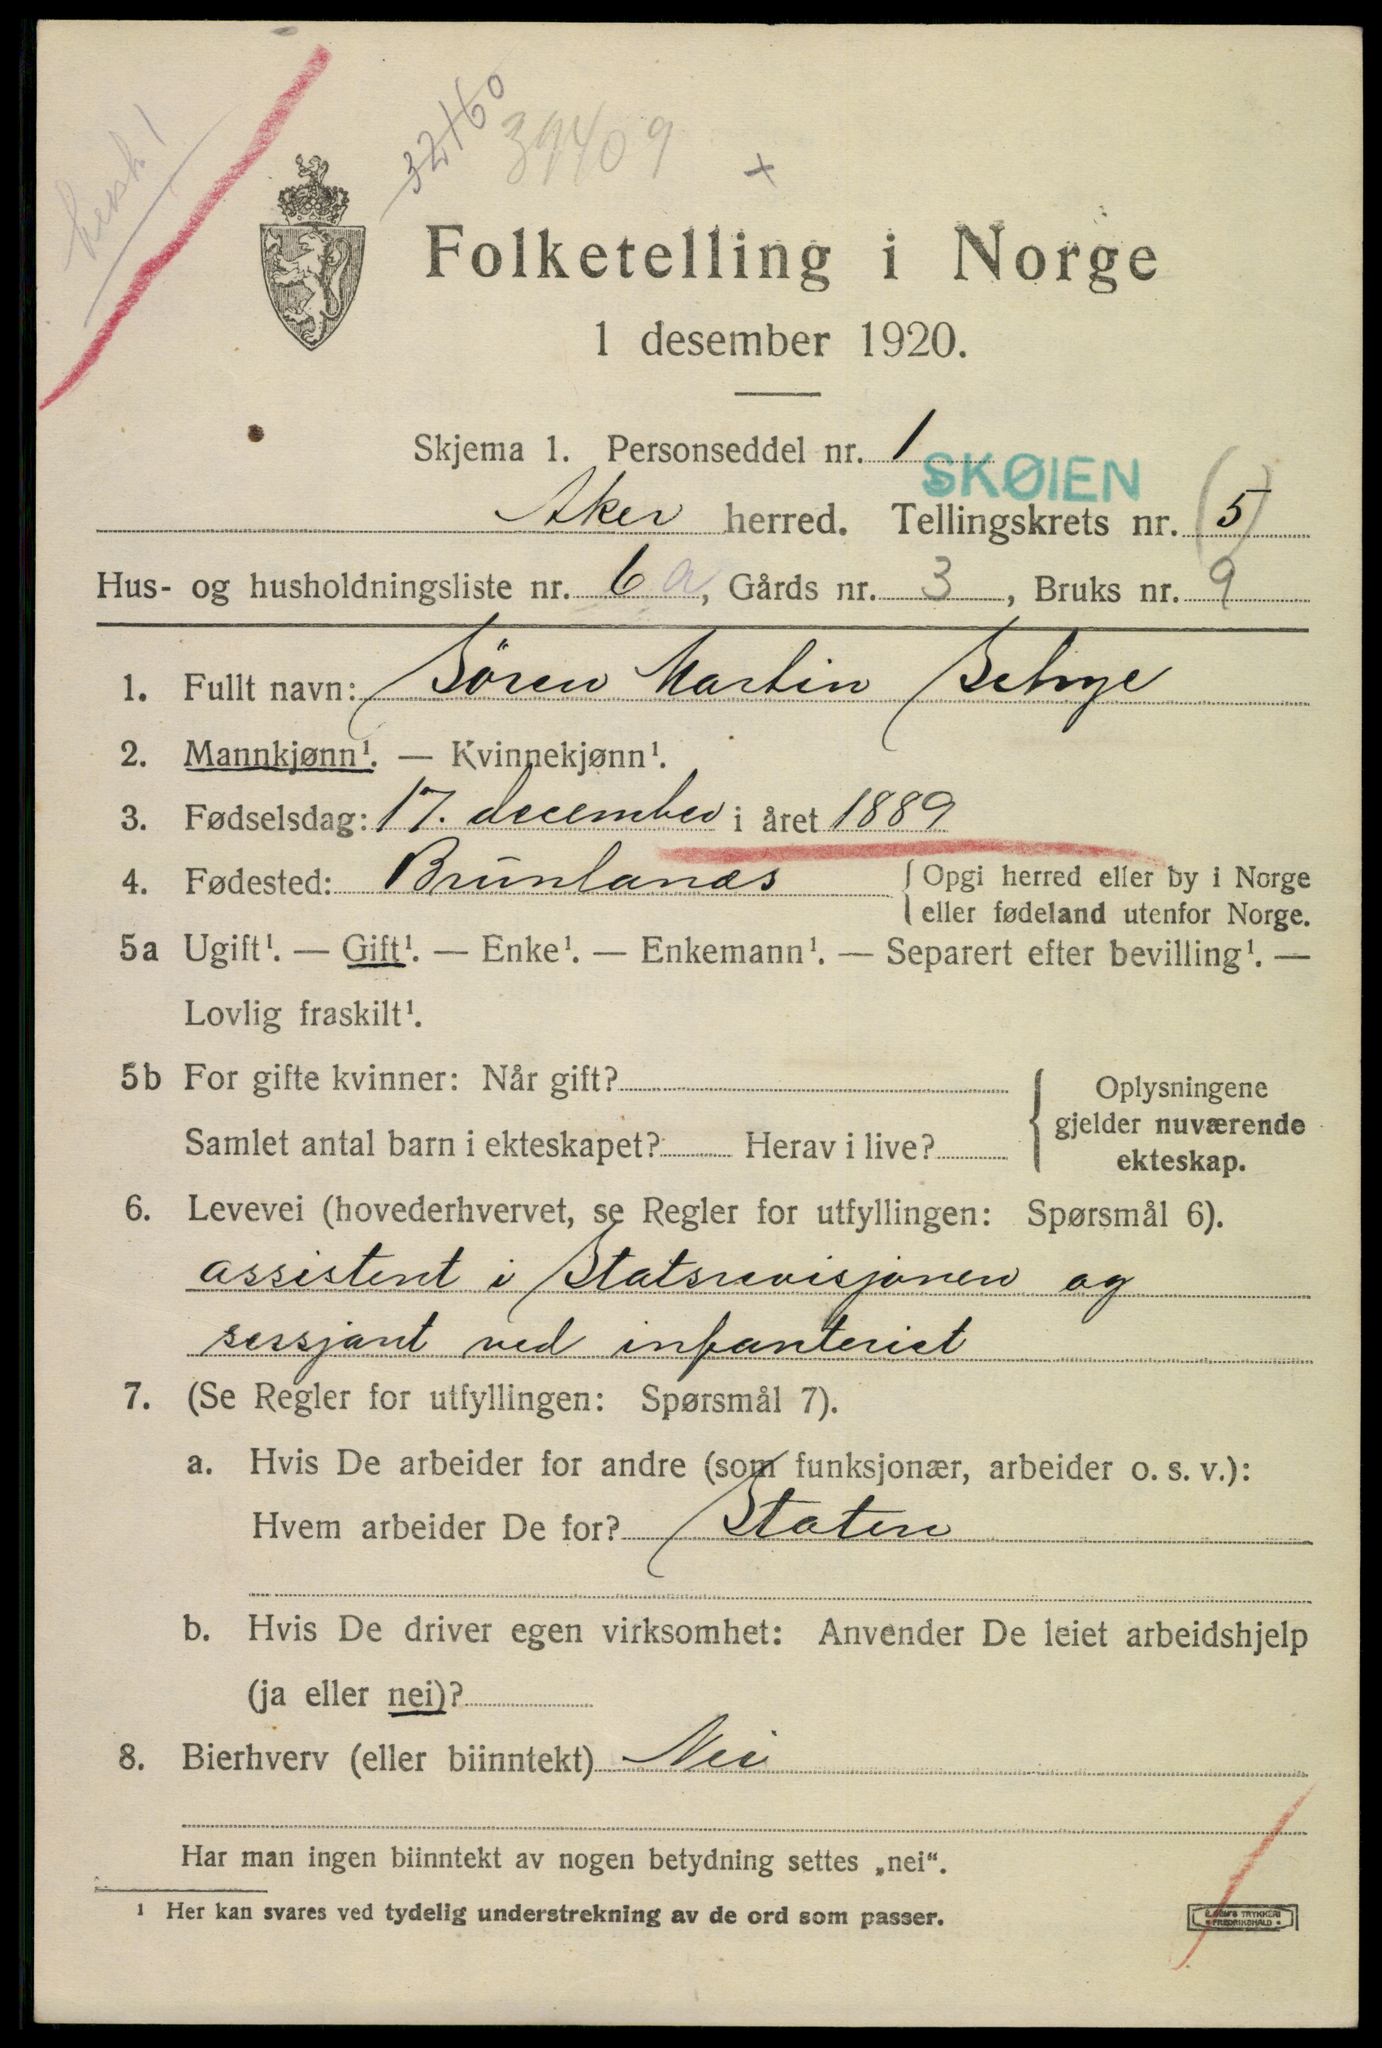 32160 39409
Folketelling i Norge
1 desember 1920.
Skjema 1. Personseddel nr. 1
SKØIEN
Aker herred. Tellingskrets nr. (5)
Hus- og husholdningsliste nr. 6 a, Gårds nr. 3, Bruks nr. 9
1. Fullt navn: Søren Martin
2. Mannkjønn¹. — Kvinnekjønn¹.
3. Fødselsdag: 17. december i året 1889
4. Fødested: Brunlanæs { Opgi herred eller by i Norge
eller fødeland utenfor Norge.
5a Ugift¹. — Gift¹. — Enke¹. — Enkemann¹. — Separert efter bevilling¹. —
Lovlig fraskilt¹.
5b For gifte kvinner: Når gift?
Samlet antal barn i ekteskapet? Herav i live?
{ Oplysningene
gjelder nuværende
ekteskap.
6. Levevei (hovederhvervet, se Regler for utfyllingen: Spørsmål 6).
assistent i Statsrevisjonen og
sersjant ved infanteriet
7. (Se Regler for utfyllingen: Spørsmål 7).
a. Hvis De arbeider for andre (som funksjonær, arbeider o. s. v.):
Hvem arbeider De for? Staten
b. Hvis De driver egen virksomhet: Anvender De leiet arbeidshjelp
(ja eller nei)?
8. Bierhverv (eller biinntekt) Nei
Har man ingen biinntekt av nogen betydning settes „nei“.
¹ Her kan svares ved tydelig understrekning av de ord som passer.
TRYKKERI
FREDRIKSHALD